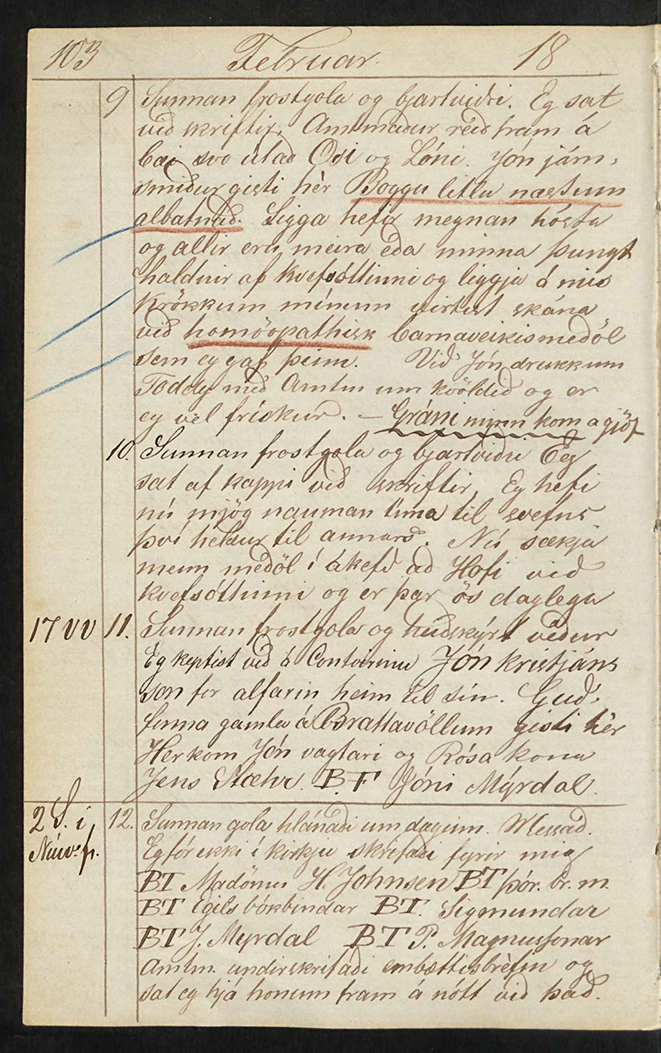 103 Februar. 18
9 Sunnan frostgola og bjartviðri. Eg sat
við skriftir, Amtmaður reið fram á
bæi svo útað Ósi og Lóni. Jón járn-
smiður gisti hér Boggu litlu næstum
albatnað. Sigga hefir megnan hósta
og allir eru meira eða minna þungt
haldnir af kvefsóttinni og liggja á mis
Krökkum mínum virtist skána
við homöopathisk barnaveikismeðöl
sem eg gaf þeim. Við Jón drukkum
Toddy með Amtm um kvöldið og er
eg vel frískur. — Gráni minn kom a gjöf
10. Sunnan frostgola og bjartviðri Eg
sat af kappi við skriftir, Eg hefi
nú mjög nauman tíma til svefns
því heldur til annars. Nú sækja
menn meðöl í ákefð að Hofi við
kvefsóttinni og er þar ös daglega
17 VV 11. Sunnan frostgola og heiðskýrt veður
Eg keptist við á Contoirinu Jón Kristjáns
son for alfarin heim til sín. Guð-
finna gamla á Brattavöllum gisti hér
Her kom Jón vagtari og Rósa kona
Jens Stæhr. B.F Jóni Mýrdal.
2 S. i 12. Sunnan gola hlánaði um daginn. Messað.
Níuv.f. Eg fór ekki í kirkju skrifaði fyrir mig
BT Madömu H. Johnsen BT þór. br. m.
BT Egils bókbindar BT. Sigmundar
BT J. Myrdal BT P. Magnussonar
Amtm. undirskrifaði embættisbréfin og
sat eg hjá honum fram á nótt við það.